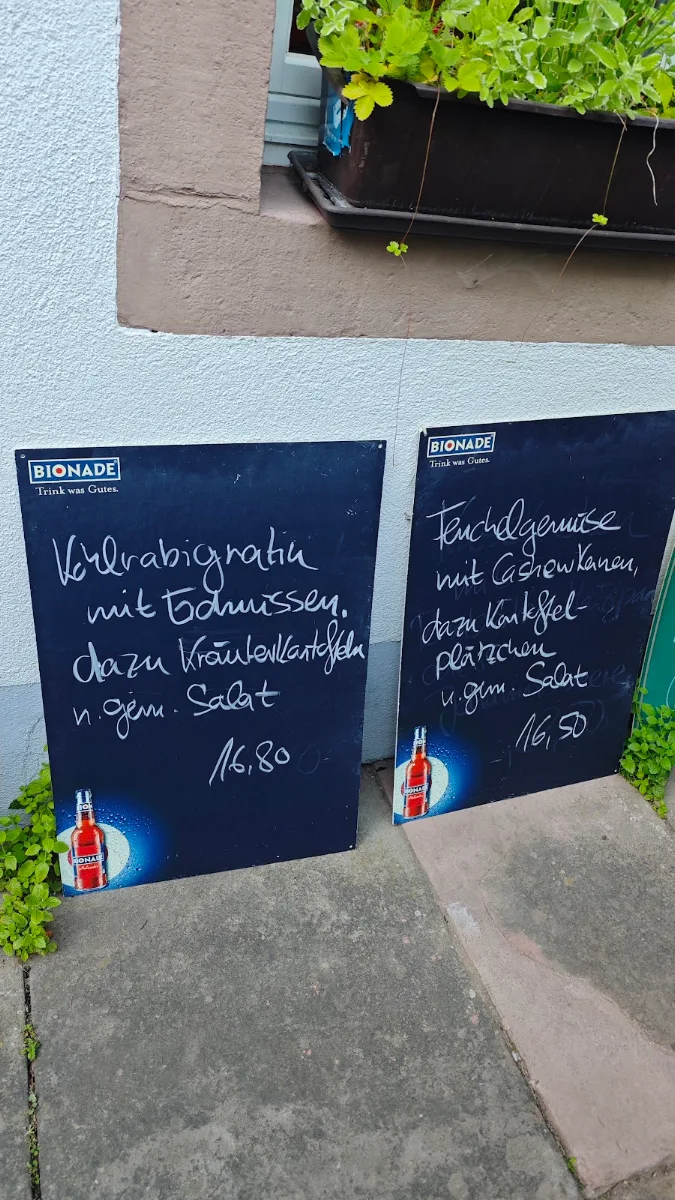 BIONADE
Trink was Gutes.
Kohlrabigratin
mit Erdnüssen,
dazu Kräuterkartoffeln
u. gem. Salat
16,80
BIONADE
BIONADE
Trink was Gutes.
Fenchelgemüse
mit Cashewkernen,
dazu Kartoffel-
plätzchen
u. gem. Salat
16,50
BIONADE